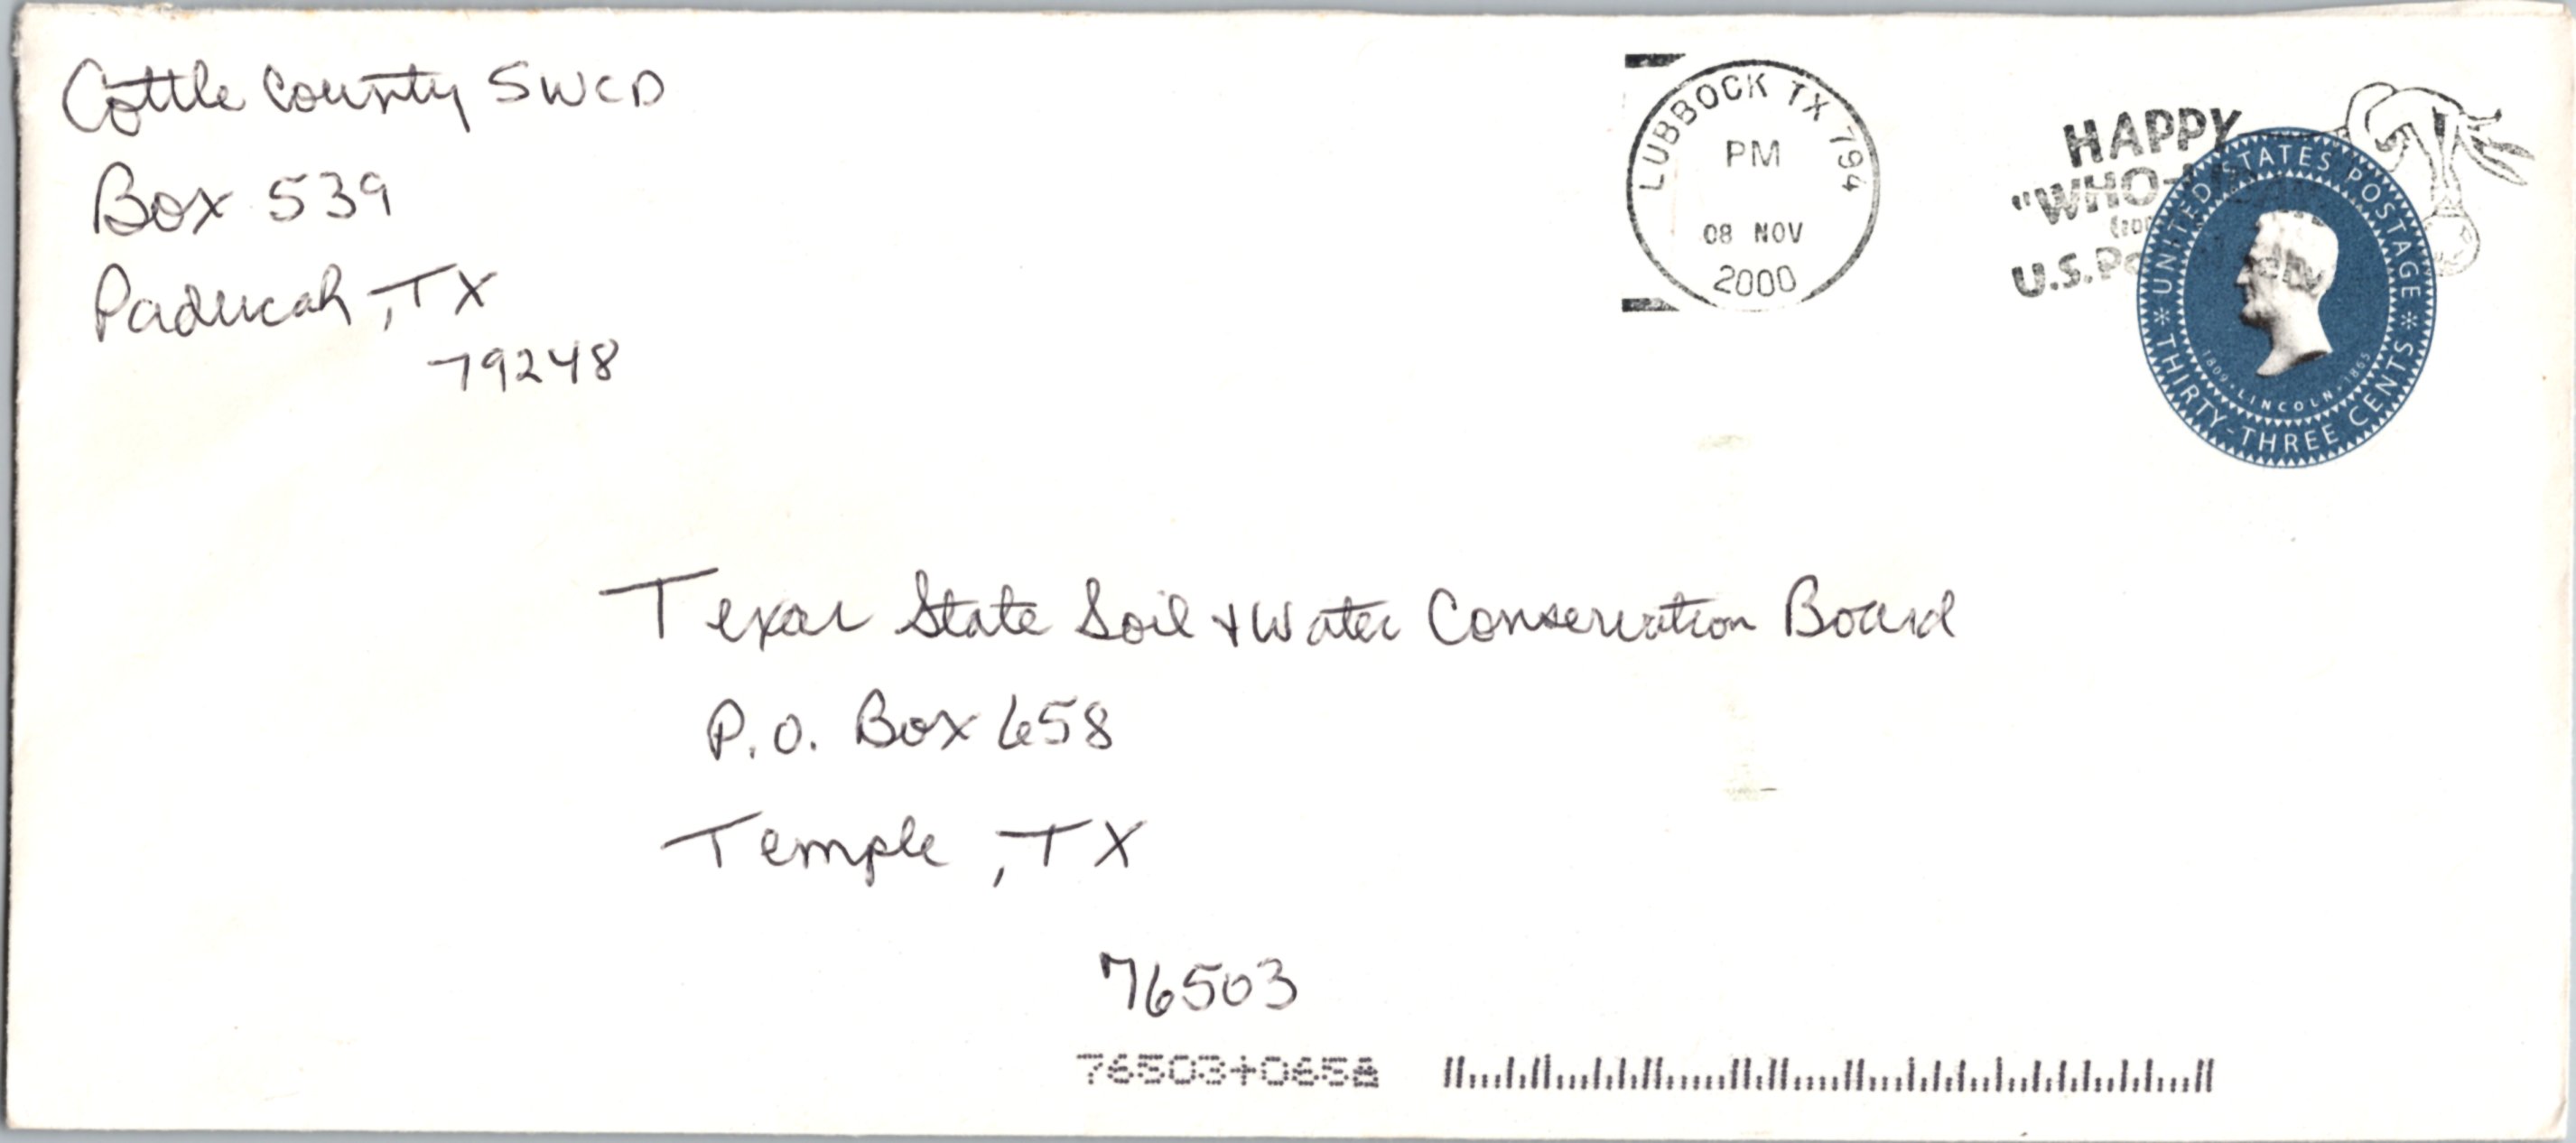 Cottle County SWCD
Box 539
Paducah, TX
79248
LUBBOCK TX 794
PM
08 NOV
2000
HAPPY
"WHO-
U.S.
UNITED STATES POSTAGE * THIRTY-THREE CENTS *
1809 • LINCOLN • 1865
Texas State Soil + Water Conservation Board
P.O. Box 658
Temple, TX
76503
76503+0658